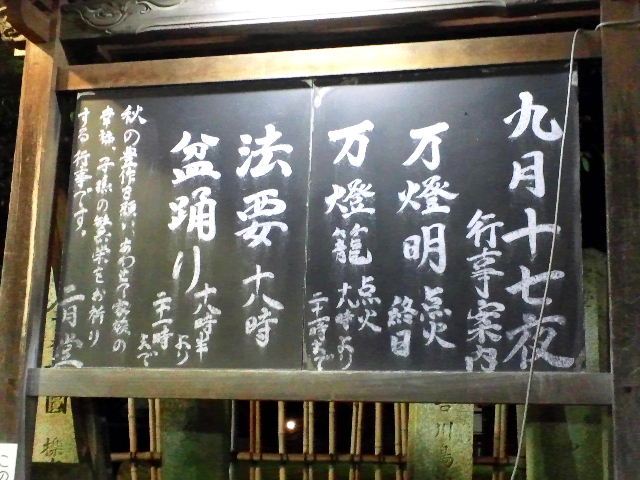 九月十七夜
行事案内
万燈明点火
終日
万燈籠点火
十九時より
二十一時まで
法要十八時
盆踊り
十八時半より
二十一時まで
秋の豊作を願い、あわせて家族の
幸福、子孫の繁栄をお祈り
する行事です。
二月堂